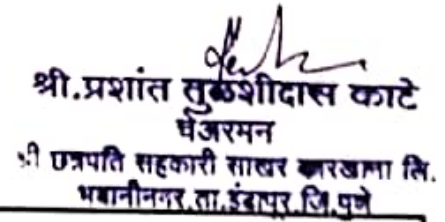 श्री.प्रशांत तुळशीदास काटे
चेअरमन
श्री छत्रपति सहकारी साखर कारखाना लि.
भवानीनगर,ता.इंदापुर,जि.पुणे